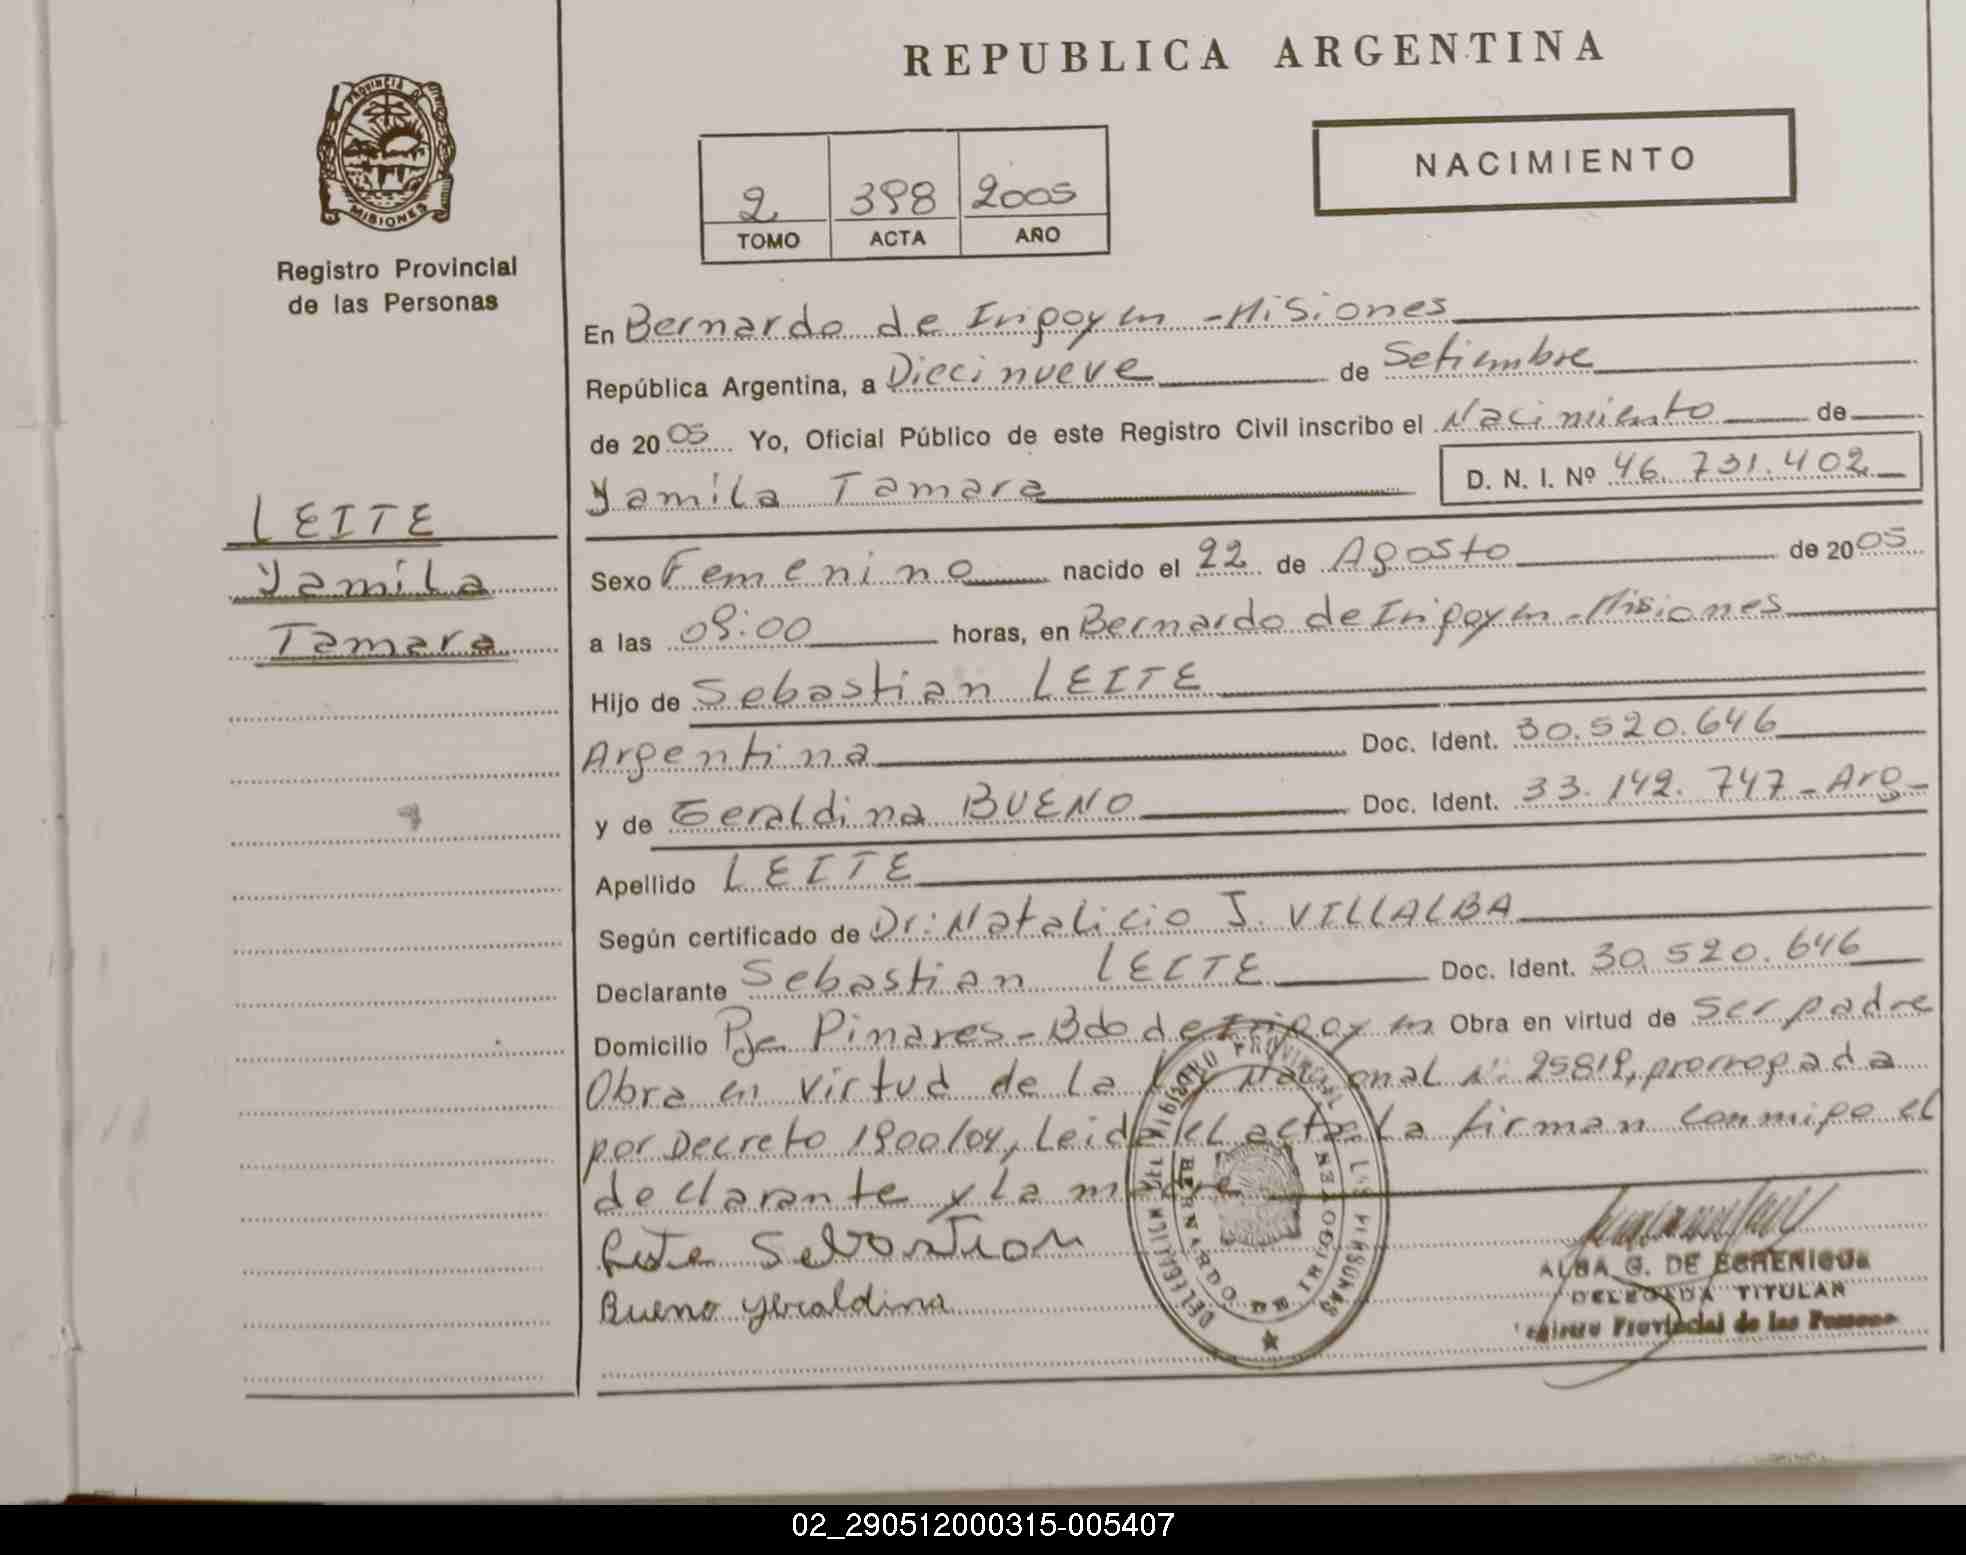 REPUBLICA ARGENTINA
PROVINCIA DE MISIONES
Registro Provincial
de las Personas
NACIMIENTO
2 398 2005
TOMO ACTA AÑO
LEITE
Yamila
Tamara
En Bernardo de Irigoyen - Misiones
República Argentina, a Diecinueve de Setiembre
de 2005 Yo, Oficial Público de este Registro Civil inscribo el Nacimiento de
Yamila Tamara D. N. I. Nº 46.731.402
Sexo Femenino nacido el 22 de Agosto de 2005
a las 09:00 horas, en Bernardo de Irigoyen - Misiones
Hijo de Sebastian LEITE
Argentina Doc. Ident. 30.520.646
y de Geraldina BUENO Doc. Ident. 33.142.747 - Arg -
Apellido LEITE
Según certificado de Dr: Natalicio J. VILLALBA
Declarante Sebastian LEITE Doc. Ident. 30.520.646
Domicilio Pje Pinares - Bdo de Irigoyen Obra en virtud de ser padre
Obra en virtud de la Ley Nacional Nº 25819, prorrogada
por Decreto 1900/04, Leida el acta, La firman conmigo el
declarante y La madre
Leite Sebastian
Bueno Yeraldina
DELEGACION DEL REGISTRO PROVINCIAL DE LAS PERSONAS
BERNARDO DE IRIGOYEN
ALBA G. DE
DELEGADA TITULAR
Registro Provincial de las Personas
02_290512000315-005407